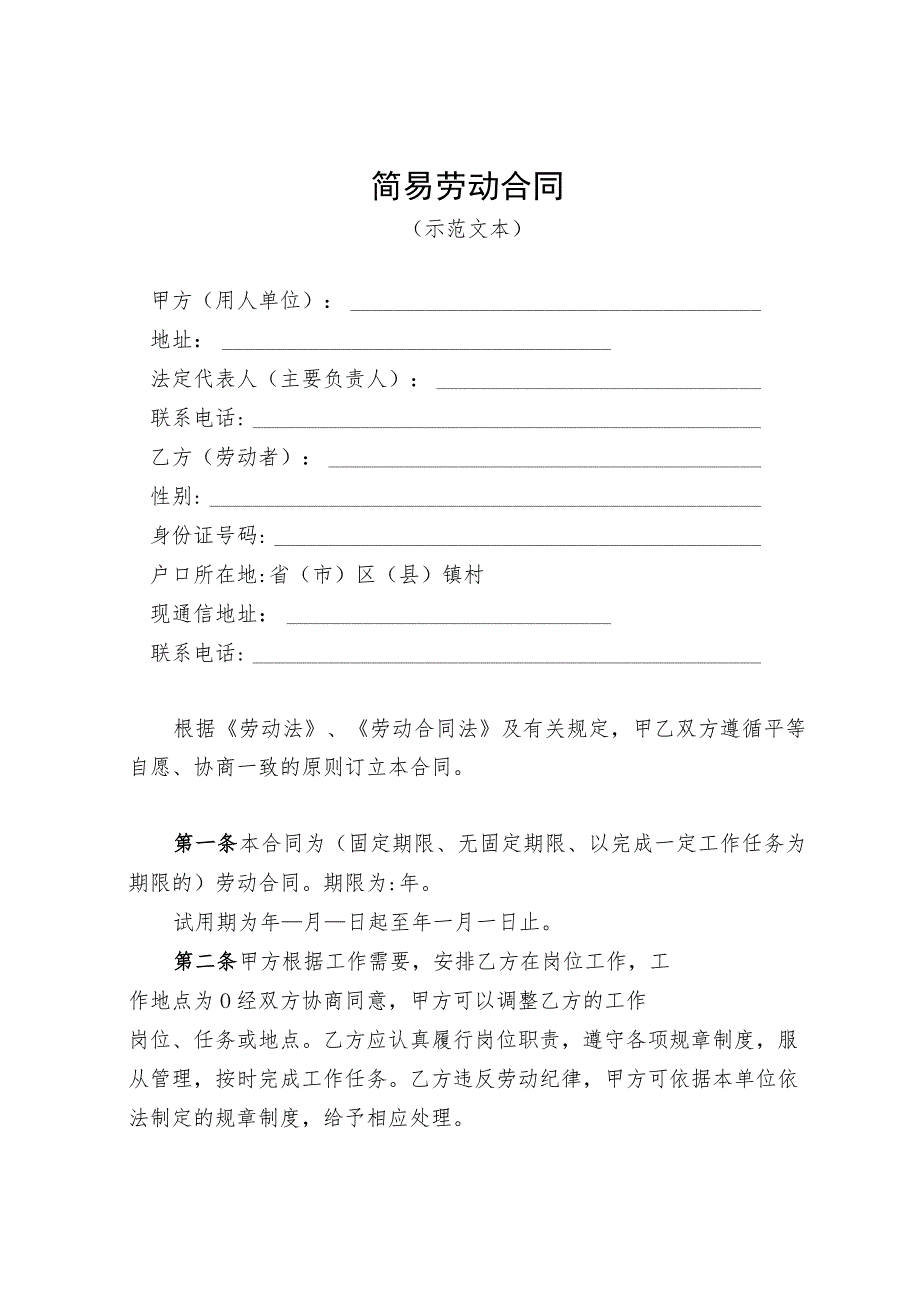 简易劳动合同
（示范文本）
甲方（用人单位）： ______________________________________
地址： ____________________________________
法定代表人（主要负责人）： ______________________________
联系电话: _______________________________________________
乙方（劳动者）： ________________________________________
性别: ___________________________________________________
身份证号码: _____________________________________________
户口所在地:省（市）区（县）镇村
现通信地址： ______________________________
联系电话: _______________________________________________
根据《劳动法》、《劳动合同法》及有关规定，甲乙双方遵循平等
自愿、协商一致的原则订立本合同。
第一条本合同为（固定期限、无固定期限、以完成一定工作任务为
期限的）劳动合同。期限为:年。
试用期为年—月—日起至年一月一日止。
第二条甲方根据工作需要，安排乙方在岗位工作，工
作地点为0经双方协商同意，甲方可以调整乙方的工作
岗位、任务或地点。乙方应认真履行岗位职责，遵守各项规章制度，服
从管理，按时完成工作任务。乙方违反劳动纪律，甲方可依据本单位依
法制定的规章制度，给予相应处理。